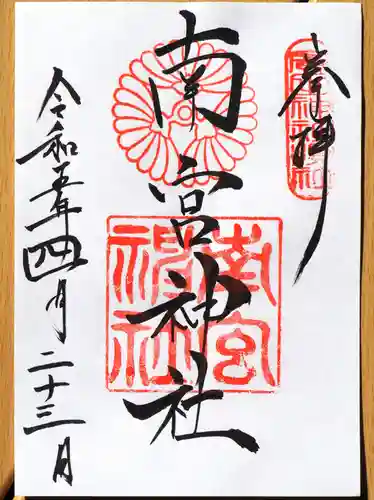 奉拝
南宮神社
南宮
神社
令和五年四月二十三日